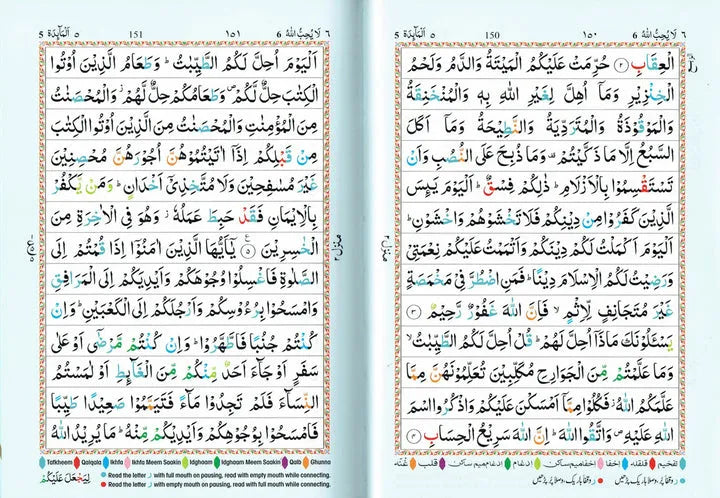 ٦ لَا يُحِبُّ اللهُ 6 ١٥٠ 150 اَلْمَآىِٕدَة ٥ 5
الْعِقَابِ ﴿٢﴾ حُرِّمَتْ عَلَيْكُمُ الْمَيْتَةُ وَالدَّمُ وَلَحْمُ
الْخِنْزِيْرِ وَمَاۤ اُهِلَّ لِغَيْرِ اللهِ بِهٖ وَالْمُنْخَنِقَةُ
وَالْمَوْقُوْذَةُ وَالْمُتَرَدِّيَةُ وَالنَّطِيْحَةُ وَمَاۤ اَكَلَ
السَّبُعُ اِلَّا مَا ذَكَّيْتُمْ ۟ وَمَا ذُبِحَ عَلَى النُّصُبِ وَاَنْ
تَسْتَقْسِمُوْا بِالْاَزْلَامِ ؕ ذٰلِكُمْ فِسْقٌ ؕ اَلْيَوْمَ يَىِٕسَ
الَّذِيْنَ كَفَرُوْا مِنْ دِيْنِكُمْ فَلَا تَخْشَوْهُمْ وَاخْشَوْنِ ؕ
اَلْيَوْمَ اَكْمَلْتُ لَكُمْ دِيْنَكُمْ وَاَتْمَمْتُ عَلَيْكُمْ نِعْمَتِيْ
وَرَضِيْتُ لَكُمُ الْاِسْلَامَ دِيْنًا ؕ فَمَنِ اضْطُرَّ فِيْ مَخْمَصَةٍ
غَيْرَ مُتَجَانِفٍ لِّاِثْمٍ ۙ فَاِنَّ اللهَ غَفُوْرٌ رَّحِيْمٌ ﴿٣﴾
يَسْـَٔلُوْنَكَ مَاذَاۤ اُحِلَّ لَهُمْ ؕ قُلْ اُحِلَّ لَكُمُ الطَّيِّبٰتُ ۙ
وَمَا عَلَّمْتُمْ مِّنَ الْجَوَارِحِ مُكَلِّبِيْنَ تُعَلِّمُوْنَهُنَّ مِمَّا
عَلَّمَكُمُ اللهُ ؗ فَكُلُوْا مِمَّاۤ اَمْسَكْنَ عَلَيْكُمْ وَاذْكُرُوا اسْمَ
اللهِ عَلَيْهِ ۪ وَاتَّقُوا اللهَ ؕ اِنَّ اللهَ سَرِيْعُ الْحِسَابِ ﴿٤﴾
تفخیم قلقلہ اخفا اخفا میم ساکن ادغام ادغام میم ساکن قلب غنہ
منزل ٢
6 ٦ لَا يُحِبُّ اللهُ ١٥١ 151 اَلْمَآىِٕدَة ٥ 5
اَلْيَوْمَ اُحِلَّ لَكُمُ الطَّيِّبٰتُ ؕ وَطَعَامُ الَّذِيْنَ اُوْتُوا
الْكِتٰبَ حِلٌّ لَّكُمْ ۪ وَطَعَامُكُمْ حِلٌّ لَّهُمْ ؗ وَالْمُحْصَنٰتُ
مِنَ الْمُؤْمِنٰتِ وَالْمُحْصَنٰتُ مِنَ الَّذِيْنَ اُوْتُوا الْكِتٰبَ
مِنْ قَبْلِكُمْ اِذَاۤ اٰتَيْتُمُوْهُنَّ اُجُوْرَهُنَّ مُحْصِنِيْنَ
غَيْرَ مُسٰفِحِيْنَ وَلَا مُتَّخِذِيْۤ اَخْدَانٍ ؕ وَمَنْ يَّكْفُرْ
بِالْاِيْمَانِ فَقَدْ حَبِطَ عَمَلُهٗ ؗ وَهُوَ فِي الْاٰخِرَةِ مِنَ
الْخٰسِرِيْنَ ﴿٥﴾ يٰۤاَيُّهَا الَّذِيْنَ اٰمَنُوْۤا اِذَا قُمْتُمْ اِلَى
الصَّلٰوةِ فَاغْسِلُوْا وُجُوْهَكُمْ وَاَيْدِيَكُمْ اِلَى الْمَرَافِقِ
وَامْسَحُوْا بِرُءُوْسِكُمْ وَاَرْجُلَكُمْ اِلَى الْكَعْبَيْنِ ؕ وَاِنْ
كُنْتُمْ جُنُبًا فَاطَّهَّرُوْا ؕ وَاِنْ كُنْتُمْ مَّرْضٰۤى اَوْ عَلٰى
سَفَرٍ اَوْ جَآءَ اَحَدٌ مِّنْكُمْ مِّنَ الْغَآىِٕطِ اَوْ لٰمَسْتُمُ
النِّسَآءَ فَلَمْ تَجِدُوْا مَآءً فَتَيَمَّمُوْا صَعِيْدًا طَيِّبًا
فَامْسَحُوْا بِوُجُوْهِكُمْ وَاَيْدِيْكُمْ مِّنْهُ ؕ مَا يُرِيْدُ اللهُ
Tafkheem Qalqala Ikhfa Ikhfa Meem Saakin Idghaam Idghaam Meem Saakin Qalb Ghunna
Read the letter ر with full mouth on pausing, read with empty mouth while connecting.
Read the letter ر with empty mouth on pausing, read with full mouth while connecting.
لِيَجْعَلَ عَلَيْكُمْ
منزل ٢